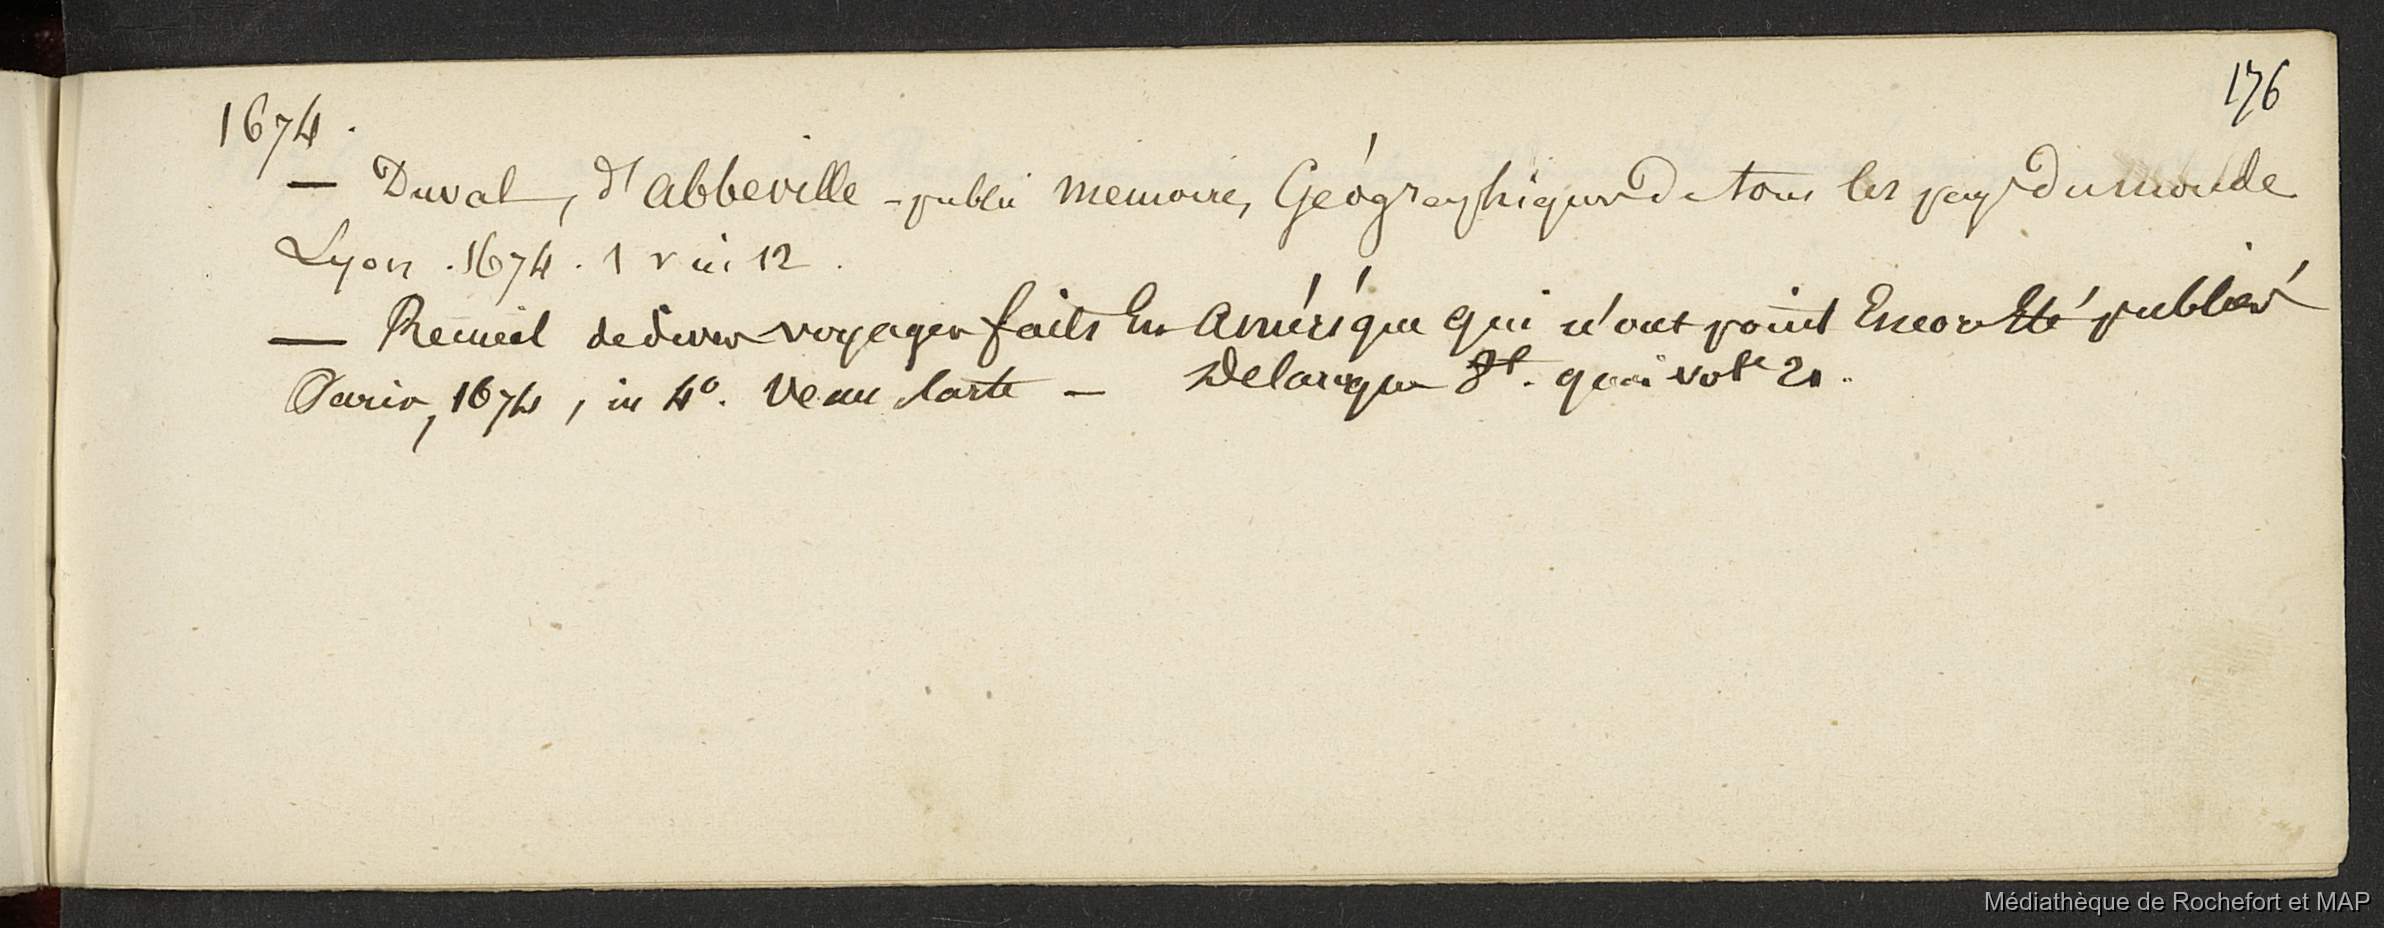 176
1674.
— Duval, d'abbeville - publie memoires Géographiques de tous les pays du monde
Lyon . 1674 . 1 v in 12 .
— Recueil de divers voyages faits En Amérique qui n'ont point Encore Eté publiés
Paris, 1674, in 4°. Veau Carte — Delarque quai 21.
Médiathèque de Rochefort et MAP